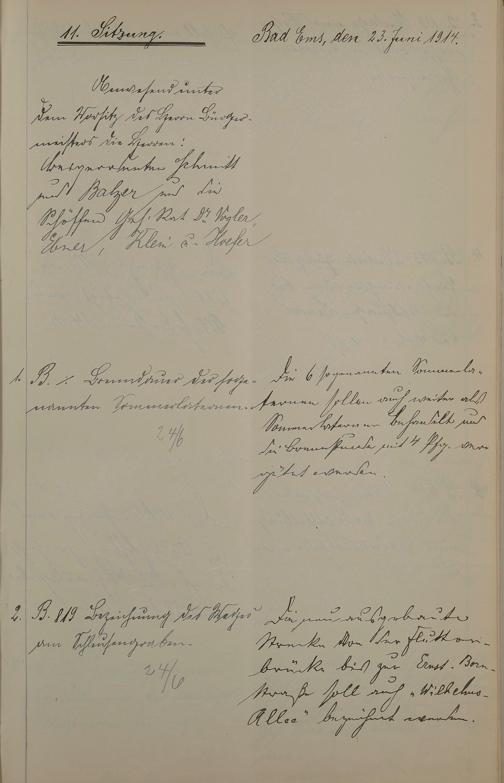 11. Sitzung.
Bad Ems, den 23. Juni 1914.
Anwesend unter
dem Vorsitz des Herrn Bürger-
meisters die Herren:
Beigeordneten Schmitt
und Balzer und die
Schöffen Geh. Rat Dr. Vogler,
Ebner, Klein u. Hoefer
1. B. ⁒ Brenndauer der soge-
nannten Sommerlaternen.
24/6
Die 6 sogenannten Sommerla-
ternen sollen auch weiter als
Sommerlaternen behandelt und
die Brennstunde mit 4 Pfg. ver-
gütet werden.
2. B. 819 Bezeichnung des Weges
am Schleusengraben.
24/6
Die neu ausgebaute
Strecke von der
brücke bis zur Ernst-Born-
straße soll auch „Wilhelms-
Allee" bezeichnet werden.